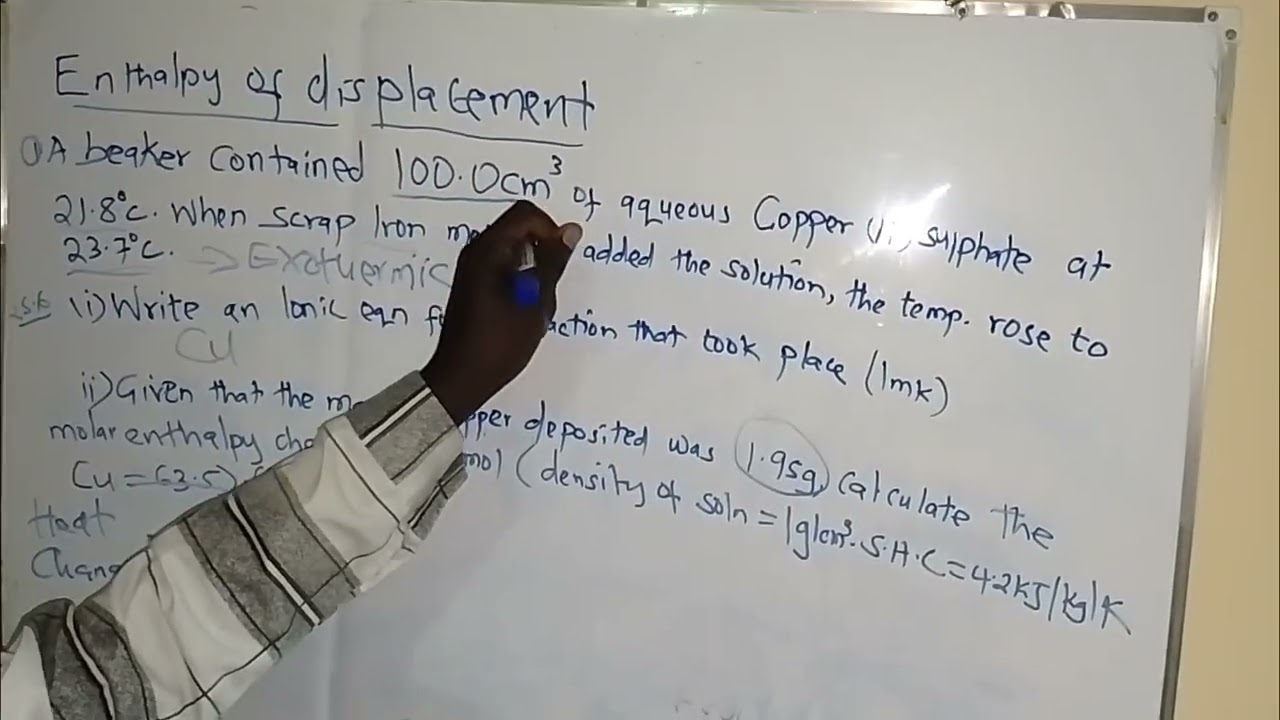 Enthalpy of displacement
① A beaker contained 100.0cm³ of aqueous Copper sulphate at
21.8°c. When scrap Iron added the solution, the temp. rose to
23.7°c. => Exothermic
(i) Write an Ionic eqn that took place (1mk)
Cu
ii) Given that the deposited was 1.95g, Calculate the
molar enthalpy (density of soln = 1g/cm³. S.H.C = 4.2kJ/kg/K
Cu = 63.5)
Heat